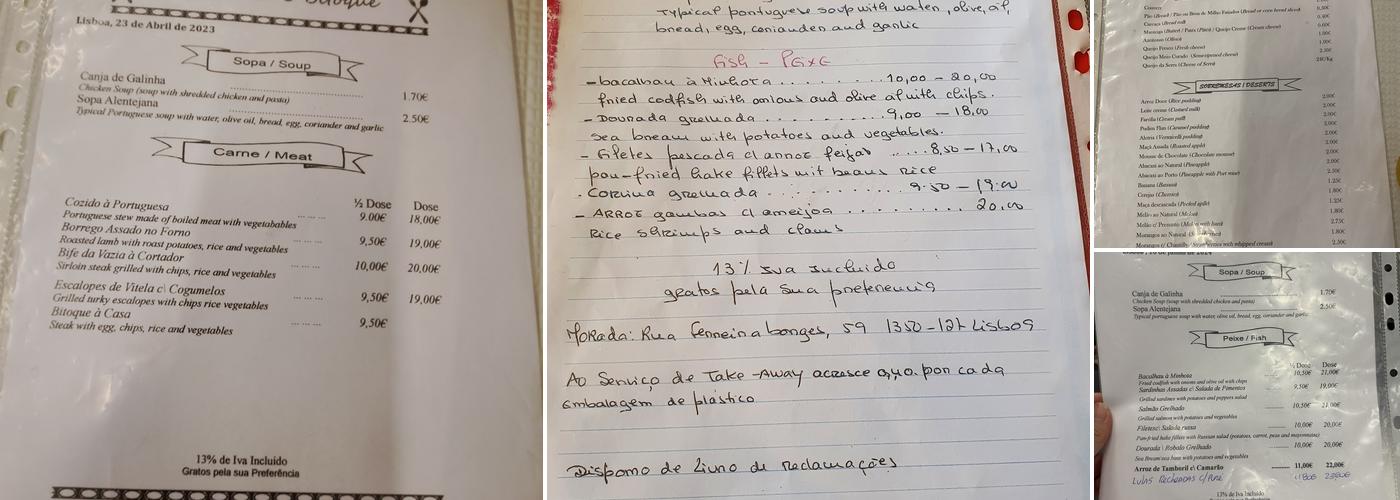 Lisboa, 23 de Abril de 2023
Sopa / Soup
Canja de Galinha
Chicken Soup (soup with shredded chicken and pasta) 1.70€
Sopa Alentejana
Typical Portuguese soup with water, olive oil, bread, egg, coriander and garlic 2.50€
Carne / Meat
½ Dose Dose
Cozido à Portuguesa 9.00€ 18,00€
Portuguese stew made of boiled meat with vegetabables
Borrego Assado no Forno 9,50€ 19,00€
Roasted lamb with roast potatoes, rice and vegetables
Bife da Vazia à Cortador 10,00€ 20,00€
Sirloin steak grilled with chips, rice and vegetables
Escalopes de Vitela c\ Cogumelos 9,50€ 19,00€
Grilled turky escalopes with chips rice vegetables
Bitoque à Casa 9,50€
Steak with egg, chips, rice and vegetables
13% de Iva Incluido
Gratos pela sua Preferência
Typical portuguese soup with water, olive, oil,
bread, egg, coriander and garlic
Fish - Peixe
- bacalhau à Minhota 10,00 - 20,00
fried codfish with onious and olive oil with chips.
- Dourada grelhada 9,00 - 18.00
Sea bream with potatoes and vegetables.
- Filetes pescada c/ arroz feijao 8,50 - 17,00
pan-fried hake fillets wit beans rice
- Corvina grelhada 9.50 - 19.00
- Arroz gambas c/ ameijoa 20.00
Rice shrimps and clams
13% iva incluido
gratos pela sua preferencia
Morada: Rua Ferreira borges, 59 1350-127 Lisboa
Ao Serviço de Take-Away acresce 0,40. por cada
embalagem de plástico
Dispomo de Livro de Reclamações
Queijo Fresco (Fresh cheese)
Queijo da Serra (Cheese of Serra)
SOBREMESAS / DESERTS
Arroz Doce (Rice pudding) 2.00€
Leite creme (Custard milk) 2.00€
Farófia (Cream puff) 2.00€
Pudim Flan (Caramel pudding) 2.00€
Aletria (Vermicelli pudding) 2.00€
Maçã Assada (Roasted apple) 2.00€
Mousse de Chocolate (Chocolate mousse) 2.00€
Abacaxi ao Natural (Pineapple)
Abacaxi ao Porto (Pineapple with Port wine)
Banana (Banana)
Cerejas (Cherries)
Maça descascada (Peeled apple)
Melão ao Natural (Melon)
Melão c/ Presunto
Morangos ao Natural
Morangos c/ Chantilly 2.50€
Sopa / Soup
Canja de Galinha 1.70€
Chicken Soup (soup with shredded chicken and pasta)
Sopa Alentejana 2.50€
Typical portuguese soup with water, olive oil, bread, egg, coriander and garlic
Peixe / Fish
½ Dose Dose
Bacalhau à Minhota 10,50€ 21,00€
Fried codfish with onions and olive oil with chips
Sardinhas Assadas c\ Salada de Pimentos 9,50€ 19,00€
Grilled sardines with potatoes and peppers salad
Salmão Grelhado 10,50€ 21.00€
Grilled salmon with potatoes and vegetables
Filetes c\ Salada russa 10,00€ 20,00€
Pan-fried hake fillets with Russian salad (potatoes, carrot, peas and mayonnaise)
Dourada \ Robalo Grelhado 10,00€ 20,00€
Sea Bream \ sea bass with potatoes and vegetables
Arroz de Tamboril c\ Camarão 11,00€ 22,00€
Lulas Recheadas c/ Puré
13% de Iva Incluido